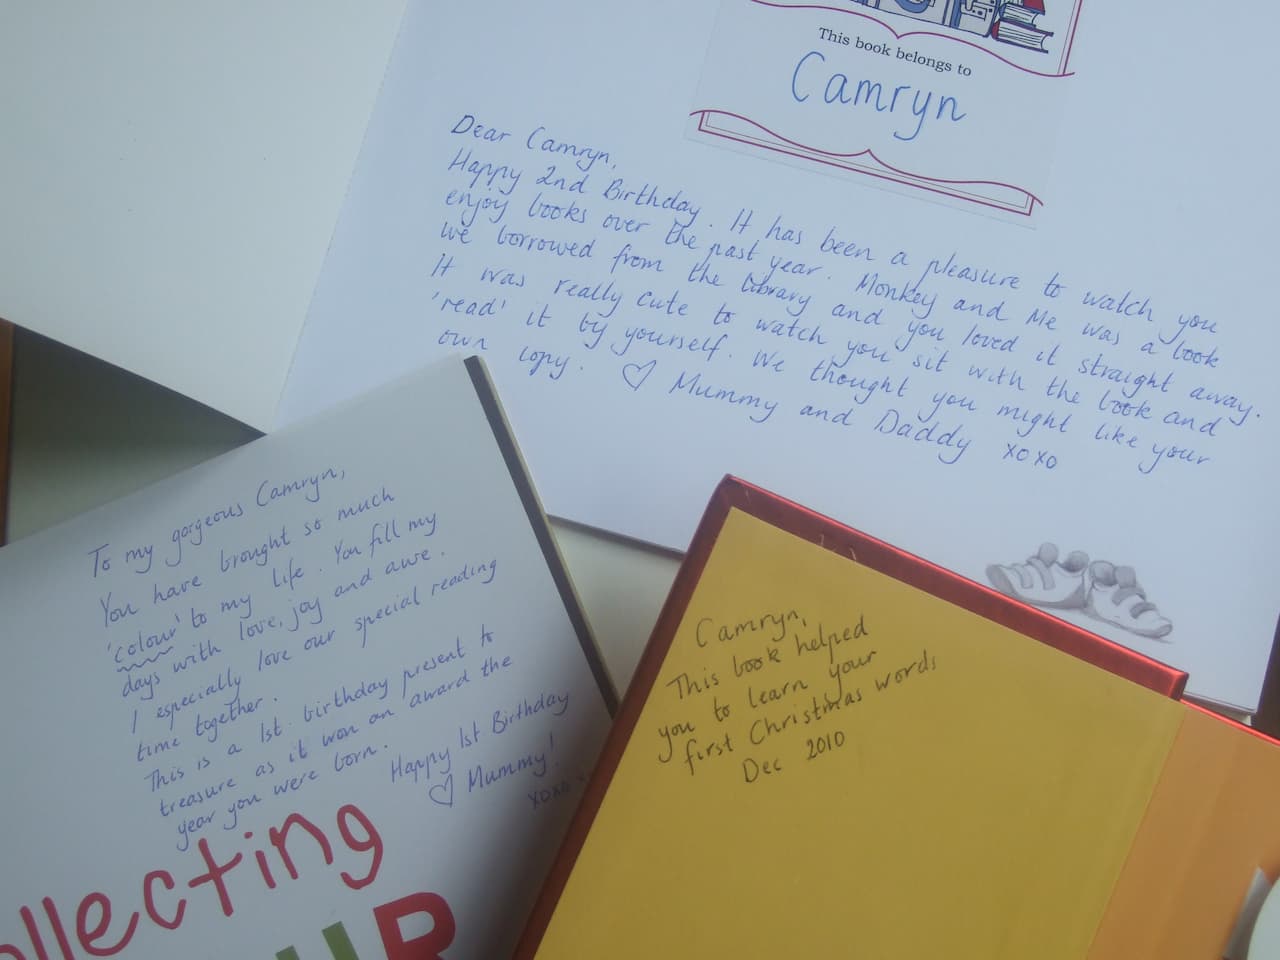 This book belongs to
Camryn
Dear Camryn,
Happy 2nd Birthday. It has been a pleasure to watch you
enjoy books over the past year. Monkey and Me was a book
we borrowed from the library and you loved it straight away.
It was really cute to watch you sit with the book and
'read' it by yourself. We thought you might like your
own copy. ♡ Mummy and Daddy xoxo
To my gorgeous Camryn,
You have brought so much
'colour' to my life. You fill my
days with love, joy and awe.
I especially love our special reading
time together.
This is a 1st birthday present to
treasure as it won an award the
year you were born.
Happy 1st Birthday
♡ Mummy!
xoxo x
ollecting
UR
Camryn,
This book helped
you to learn your
first Christmas words
Dec 2010